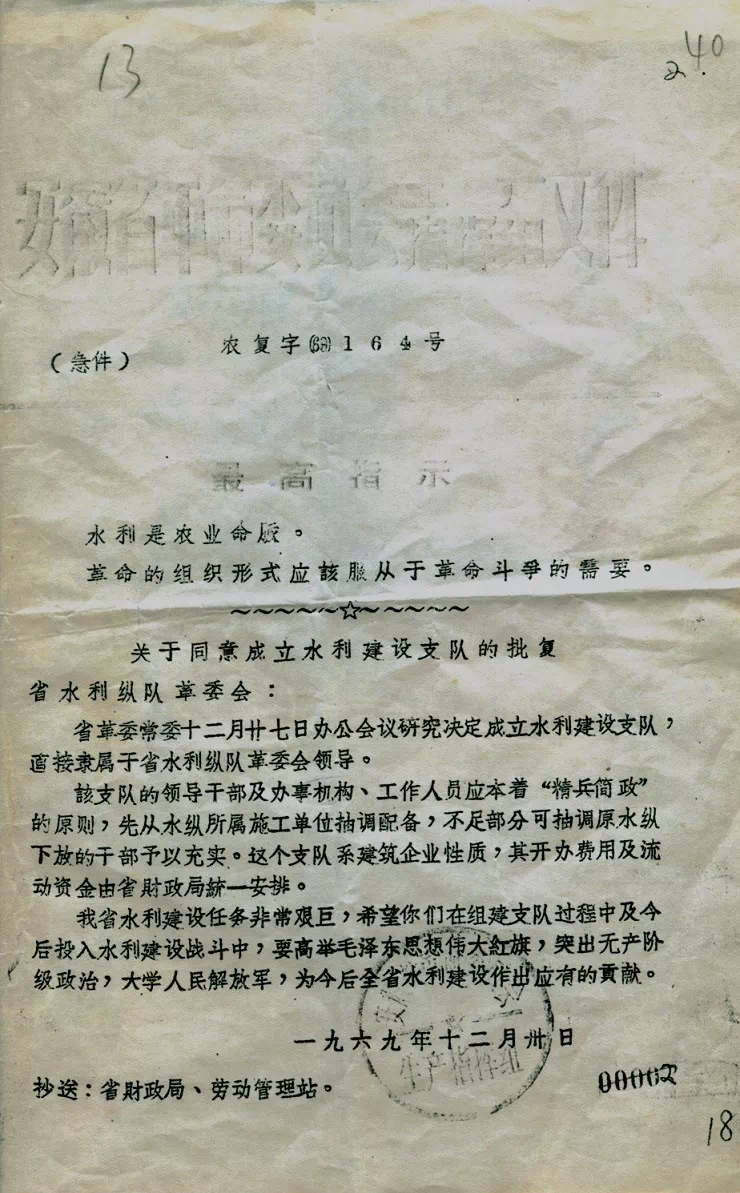 13
40
2.
农复字(69)164号
(急件)
最高指示
水利是农业命脉。
革命的组织形式应該服从于革命斗爭的需要。
~~~~~~☆~~~~~~
关于同意成立水利建设支队的批复
省水利纵队革委会:
省革委常委十二月廿七日办公会议研究决定成立水利建设支队,
直接隶属于省水利纵队革委会领导。
該支队的领导干部及办事机构、工作人员应本着“精兵简政”
的原则,先从水纵所属施工单位抽调配备,不足部分可抽调原水纵
下放的干部予以充实。这个支队系建筑企业性质,其开办费用及流
动资金由省財政局統一安排。
我省水利建设任务非常艰巨,希望你们在组建支队过程中及今
后投入水利建设战斗中,要高举毛泽东思想伟大紅旗,突出无产阶
级政治,大学人民解放军,为今后全省水利建设作出应有的貢献。
一九六九年十二月卅日
生产指挥组
抄送:省財政局、劳动管理站。
00002
18